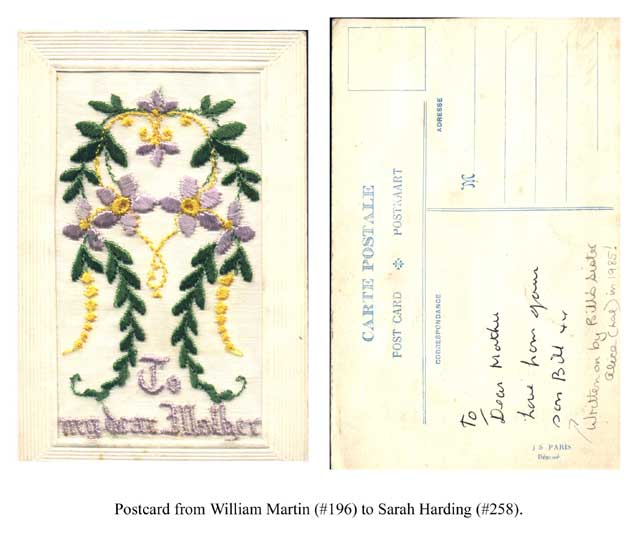 To
my dear Mother
CARTE POSTALE
POST CARD ❖ POSTKAART
ADRESSE
M
CORRESPONDANCE
To
Dear Mother
love from your
son Bill xx
Written on by Bill's sister
alice (Lal) in 1985!
J S PARIS
Déposé
Postcard from William Martin (#196) to Sarah Harding (#258).